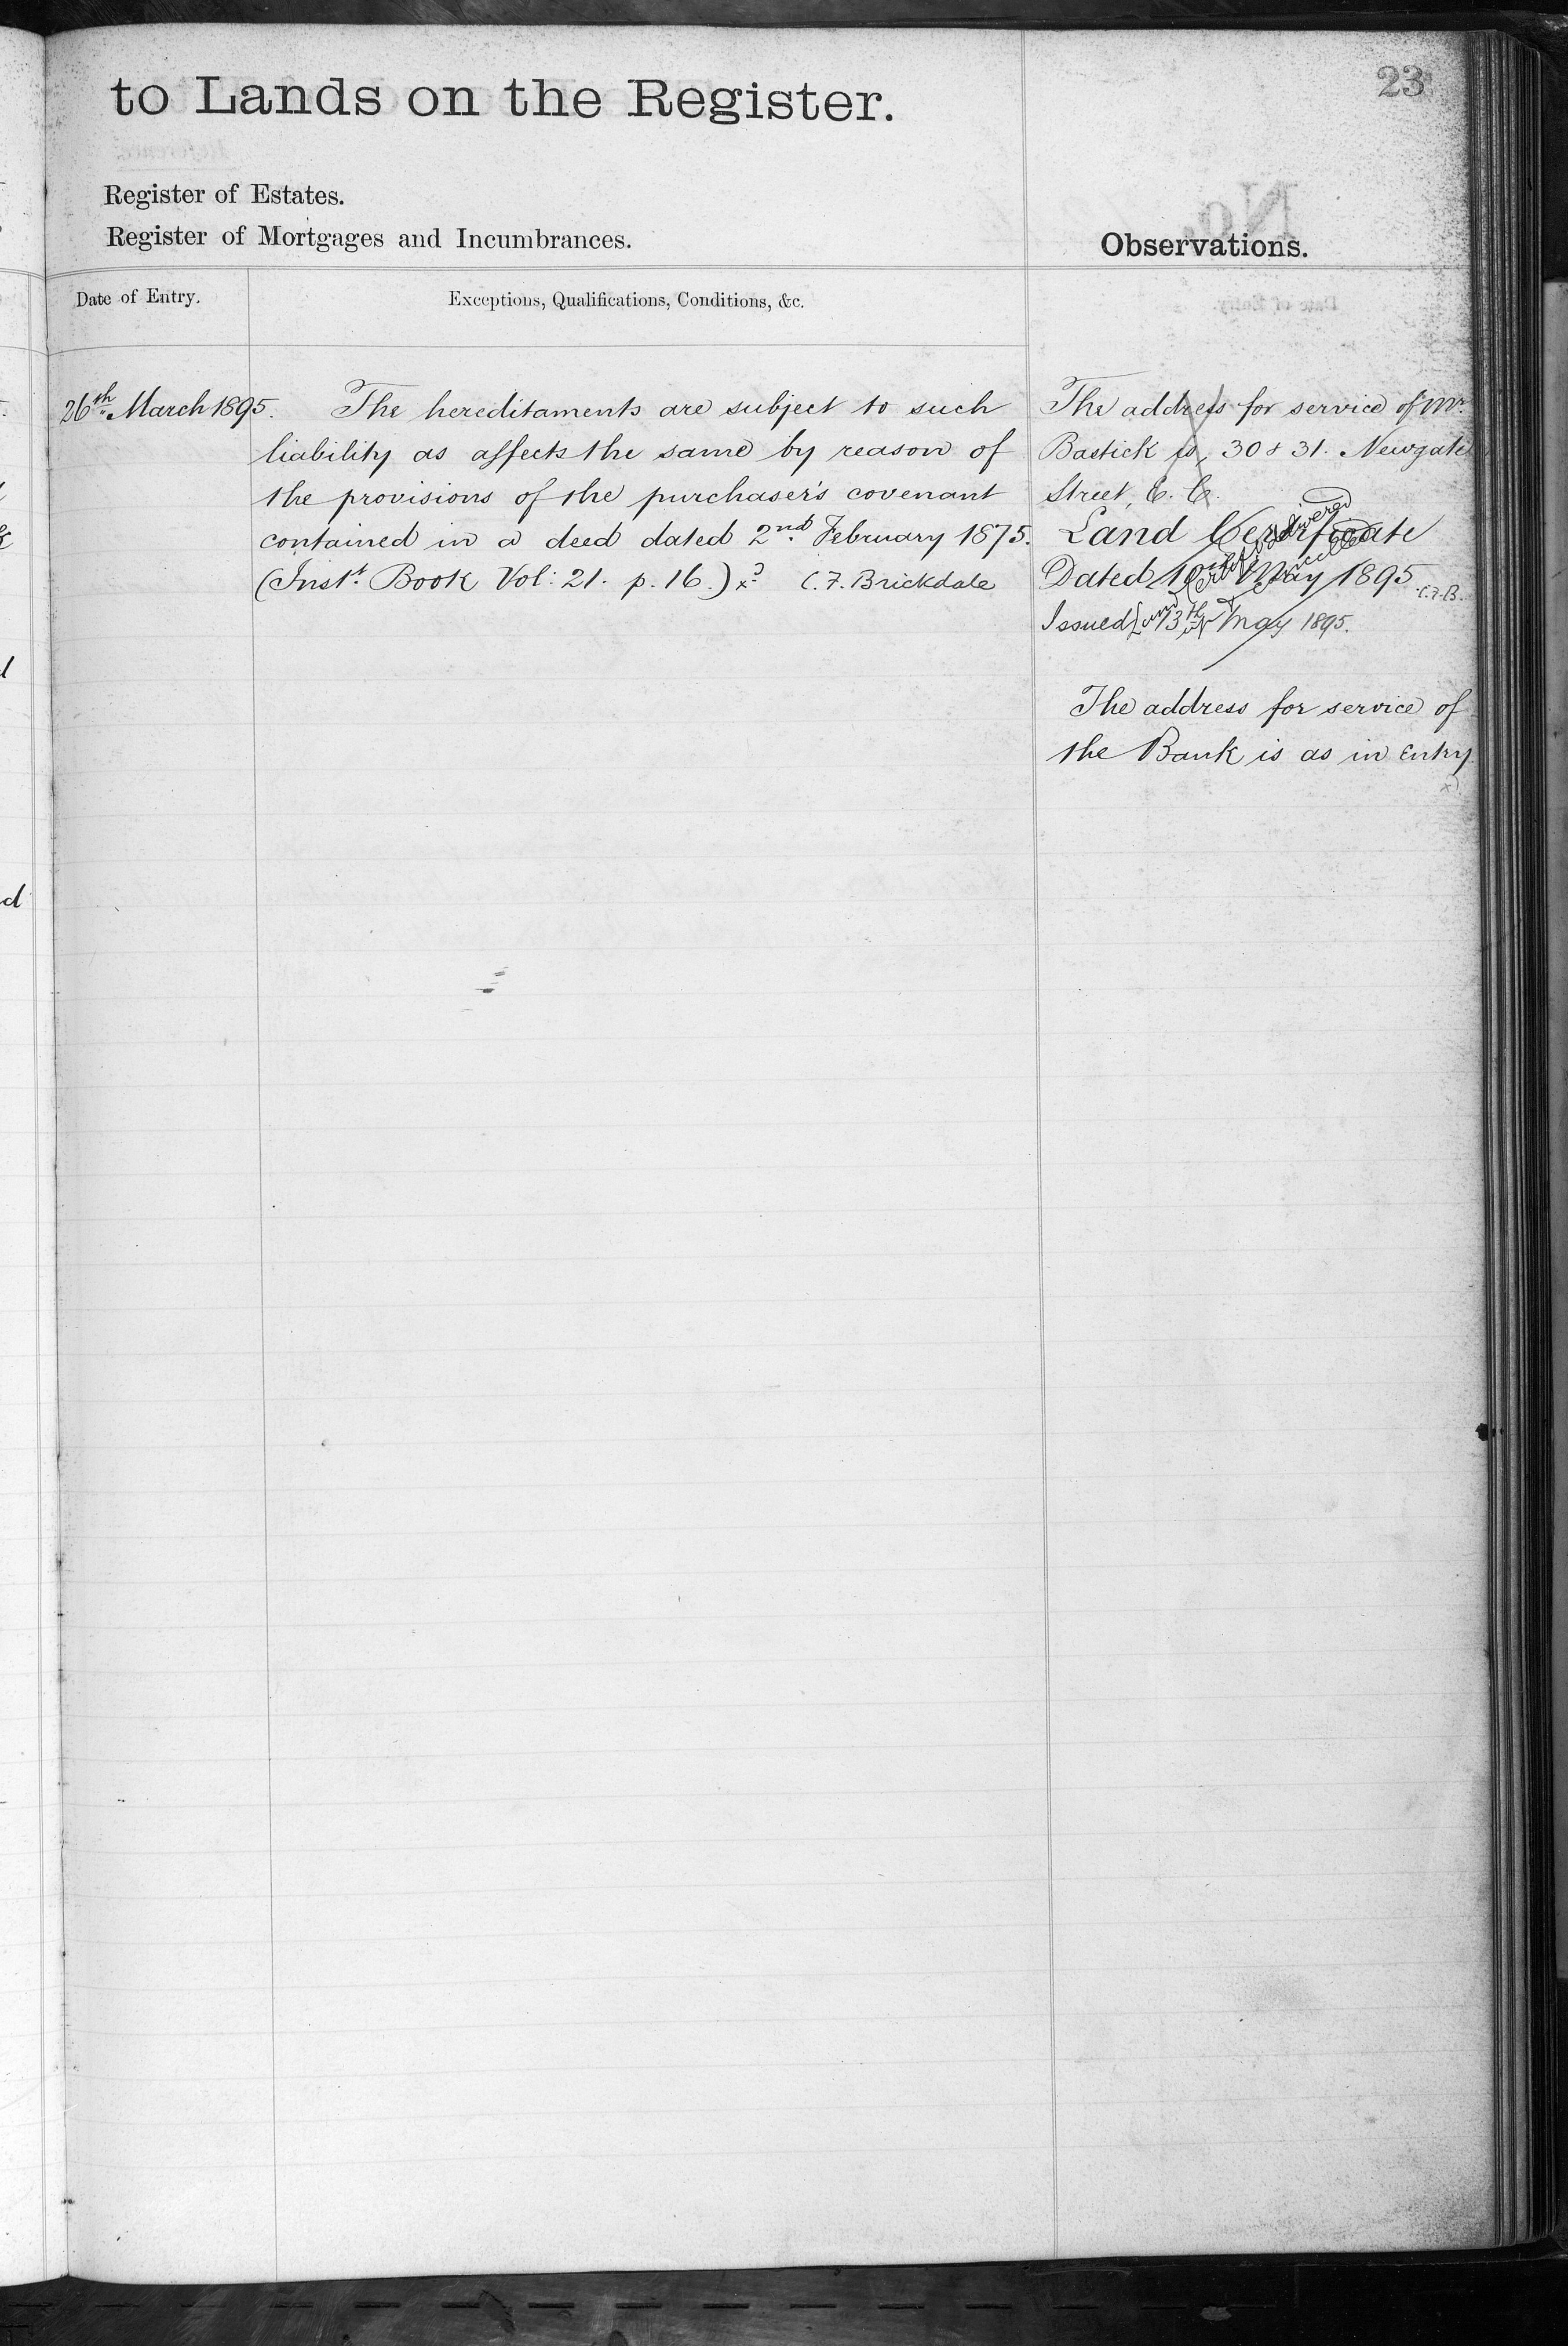 23
to Lands on the Register.
Register of Estates.
Register of Mortgages and Incumbrances.
Observations.
Date of Entry.
Exceptions, Qualifications, Conditions, &c.
26th March 1895.
The hereditaments are subject to such
liability as affects the same by reason of
the provisions of the purchaser's covenant
contained in a deed dated 2nd February 1875.
(Inst. Book Vol: 21. p. 16.) x C. F. Brickdale
The address for service of Mr.
Bastick is, 30 & 31. Newgate
Street, E. C.
Land Certificate
Dated 10th May 1895 C.F.B.
Issued 13th May 1895.
Land Certificate delivered
up & cancelled
The address for service of
the Bank is as in Entry